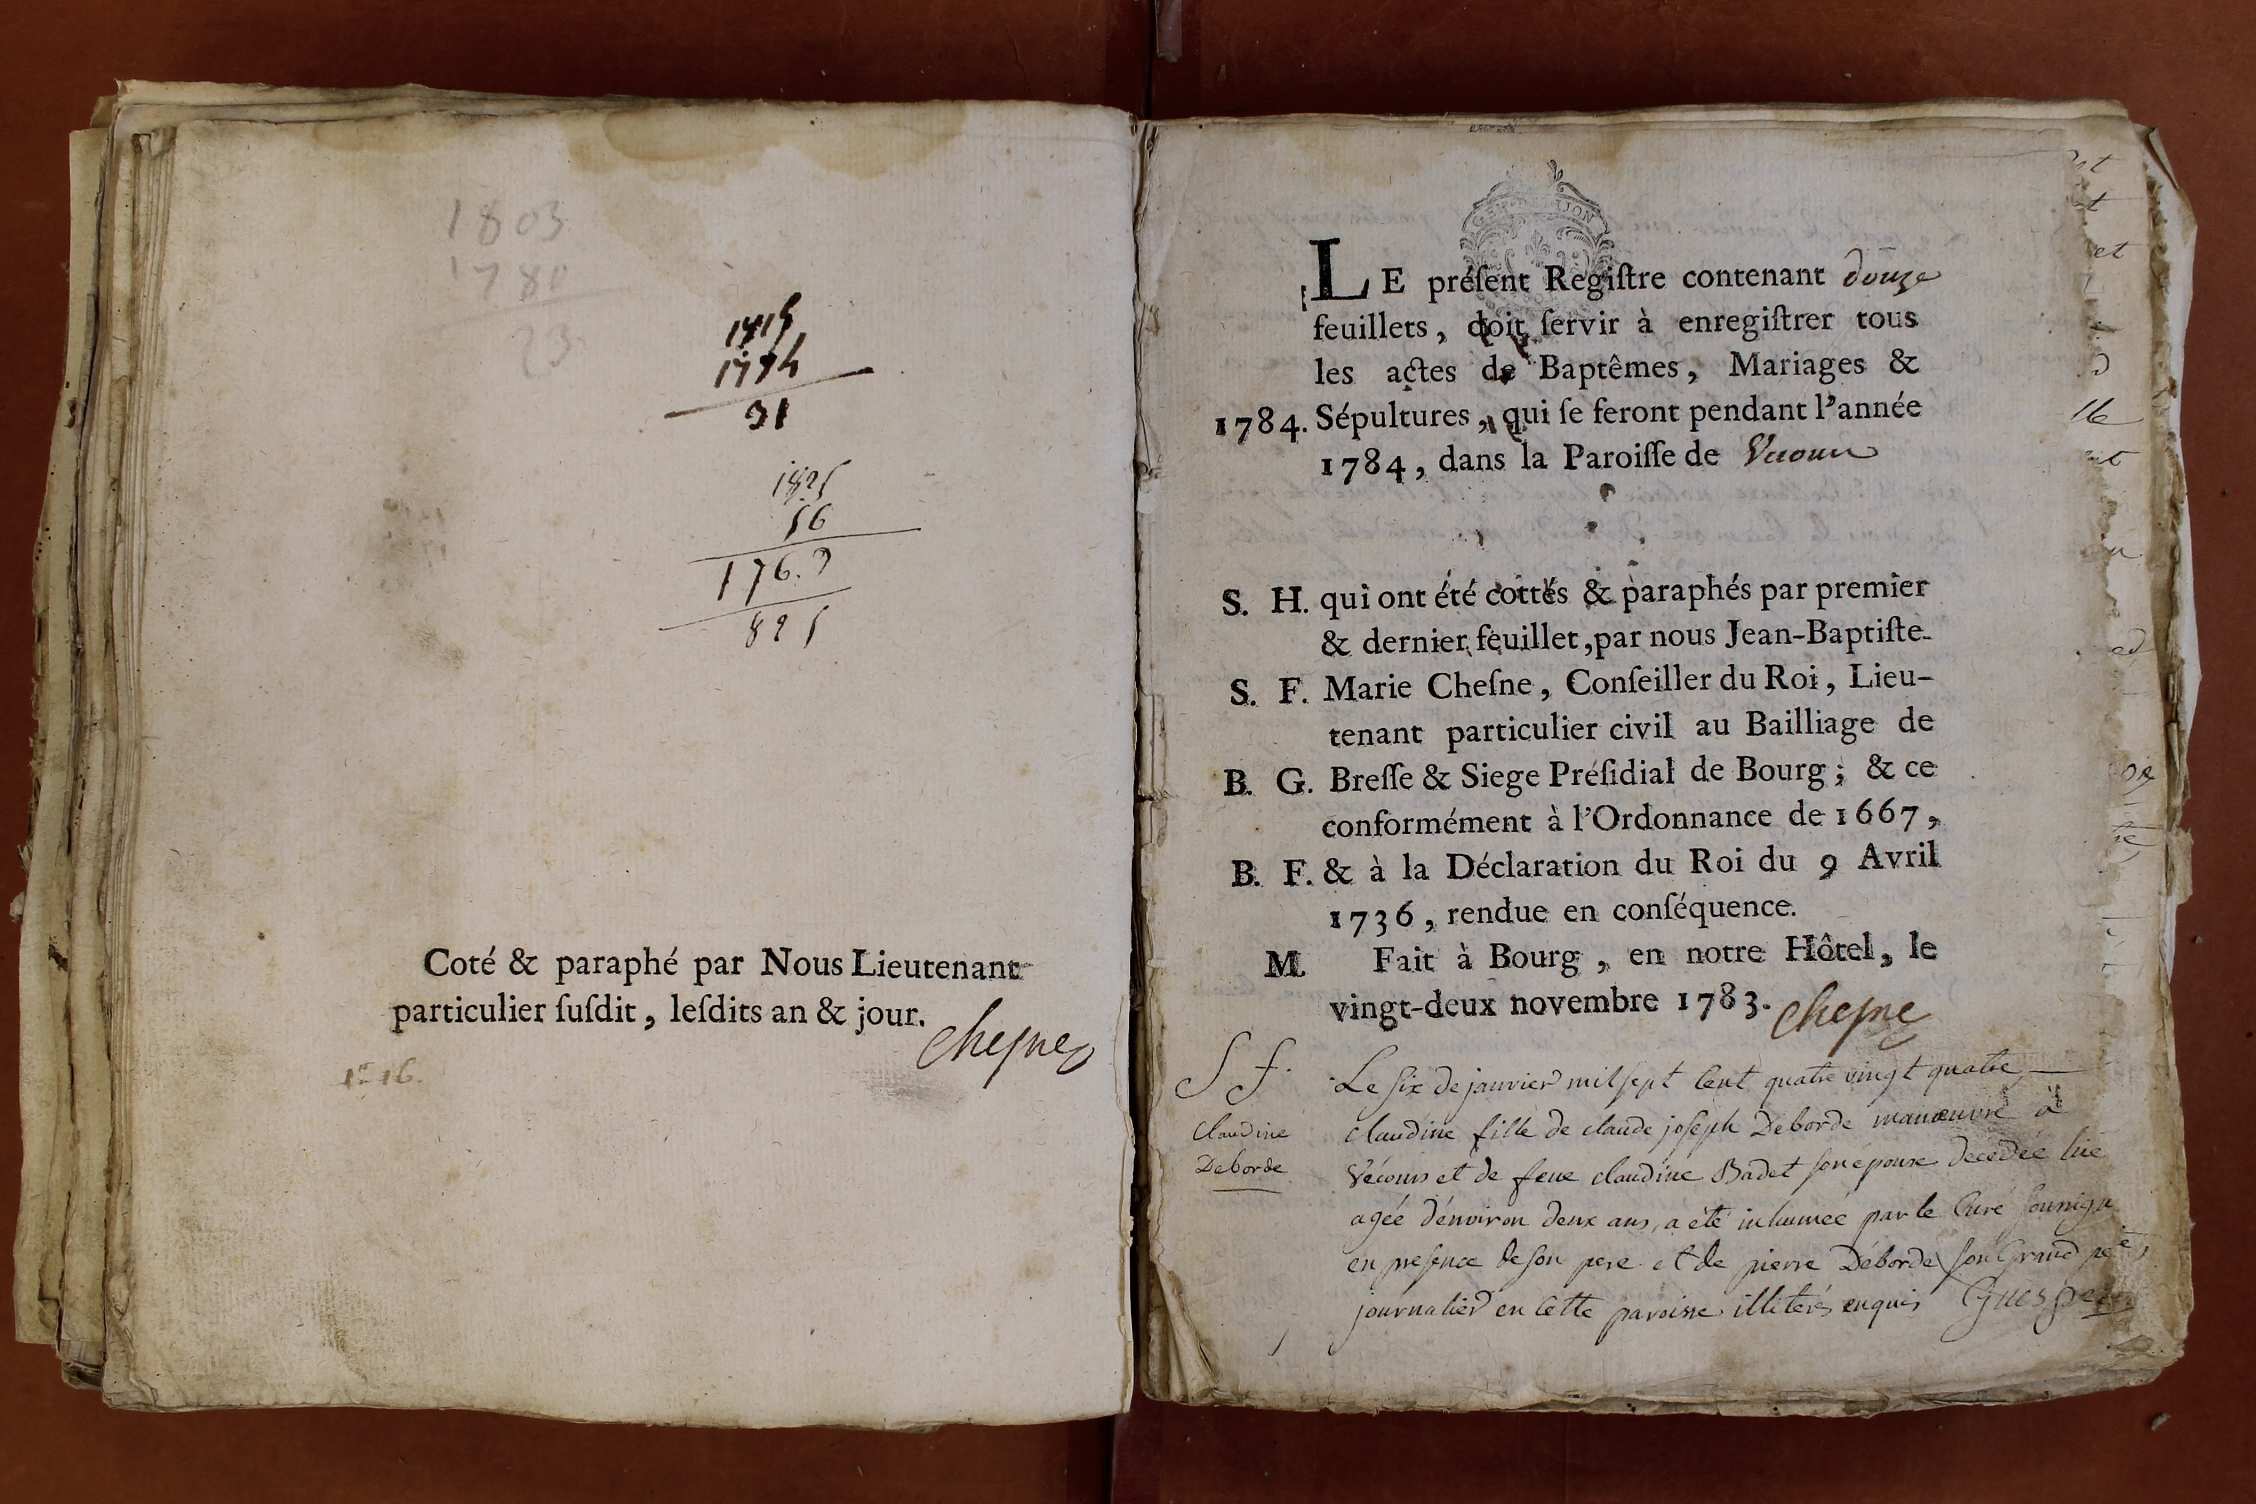 1803
1780
23
1815
1794
31
1825
56
1769
825
Coté & paraphé par Nous Lieutenant
particulier ſuſdit, leſdits an & jour.
Cheſne
1784.
LE préſent Regiſtre contenant douze
feuillets, doit ſervir à enregiſtrer tous
les actes de Baptêmes, Mariages &
Sépultures, qui ſe feront pendant l'année
1784, dans la Paroiſſe de
S. H. qui ont été cottés & paraphés par premier
& dernier feuillet, par nous Jean-Baptiſte-
S. F. Marie Cheſne, Conſeiller du Roi, Lieu-
tenant particulier civil au Bailliage de
B. G. Breſſe & Siege Préſidial de Bourg; & ce
conformément à l'Ordonnance de 1667,
B. F. & à la Déclaration du Roi du 9 Avril
1736, rendue en conſéquence.
M. Fait à Bourg, en notre Hôtel, le
vingt-deux novembre 1783. Cheſne
S f.
Claudine
Deborde
Le ſix de janvier mil ſept cent quatre vingt quatre
claudine fille de claude joſeph Deborde manœuvre à
Vécours et de feue claudine Badet ſon epouse decedée
agée d'environ deux ans, a été inhumée par le Curé
en preſence de ſon pere et de pierre Déborde ſon Grand pere
journalier en cette paroisse illiterés enquis